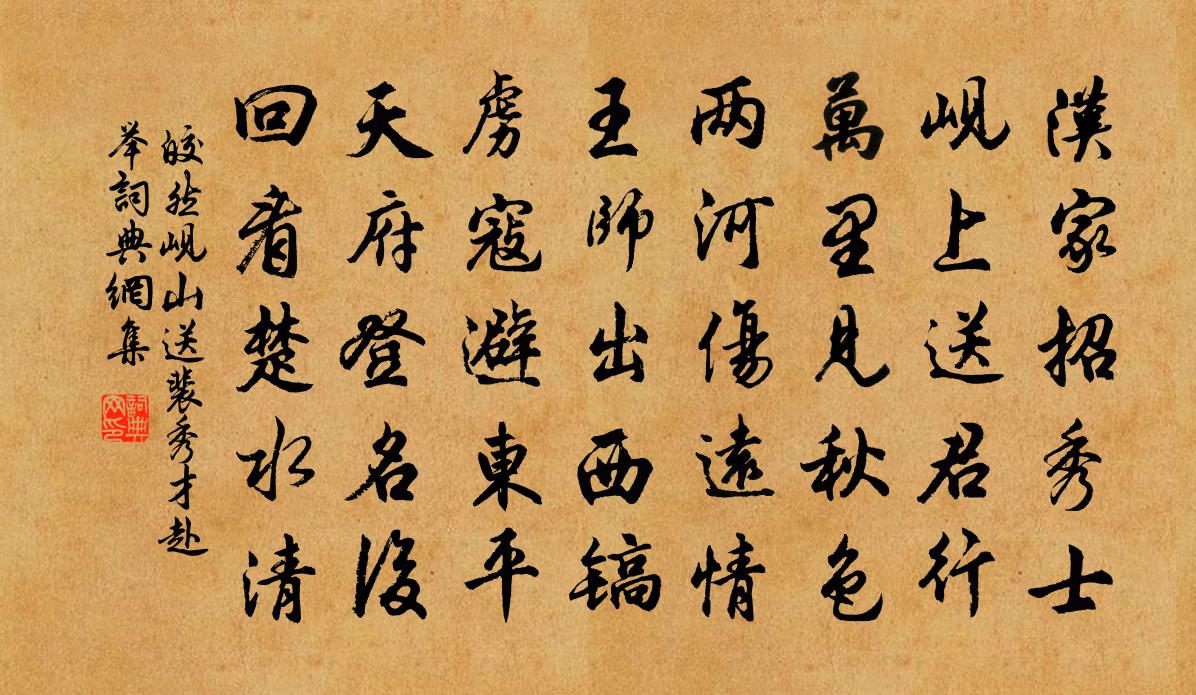 漢家招秀士
岘上送君行
萬里見秋色
两河傷遠情
王師出西镐
虏寇避東平
天府登名後
回看楚水清
皎然岘山送裴秀才赴
举詞典網集
詞典网印